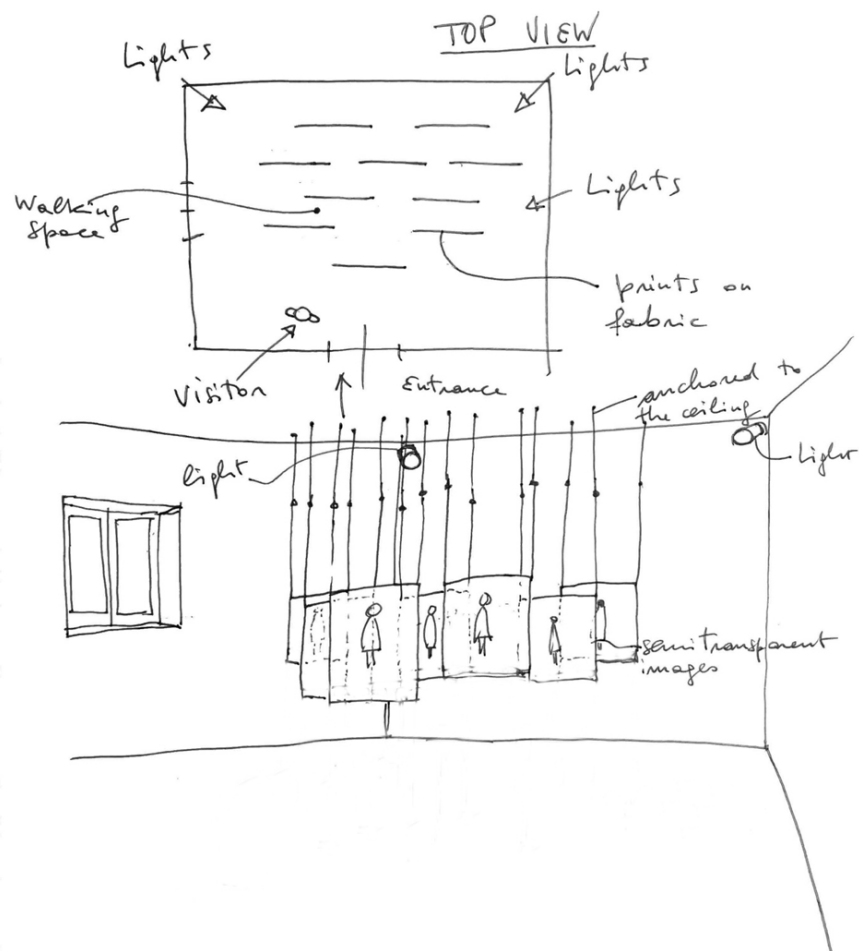 TOP VIEW
Lights
Lights
Lights
Walking
Space
prints on
fabric
Visitor
Entrance
anchored to
the ceiling
light
Light
semitransparent
images